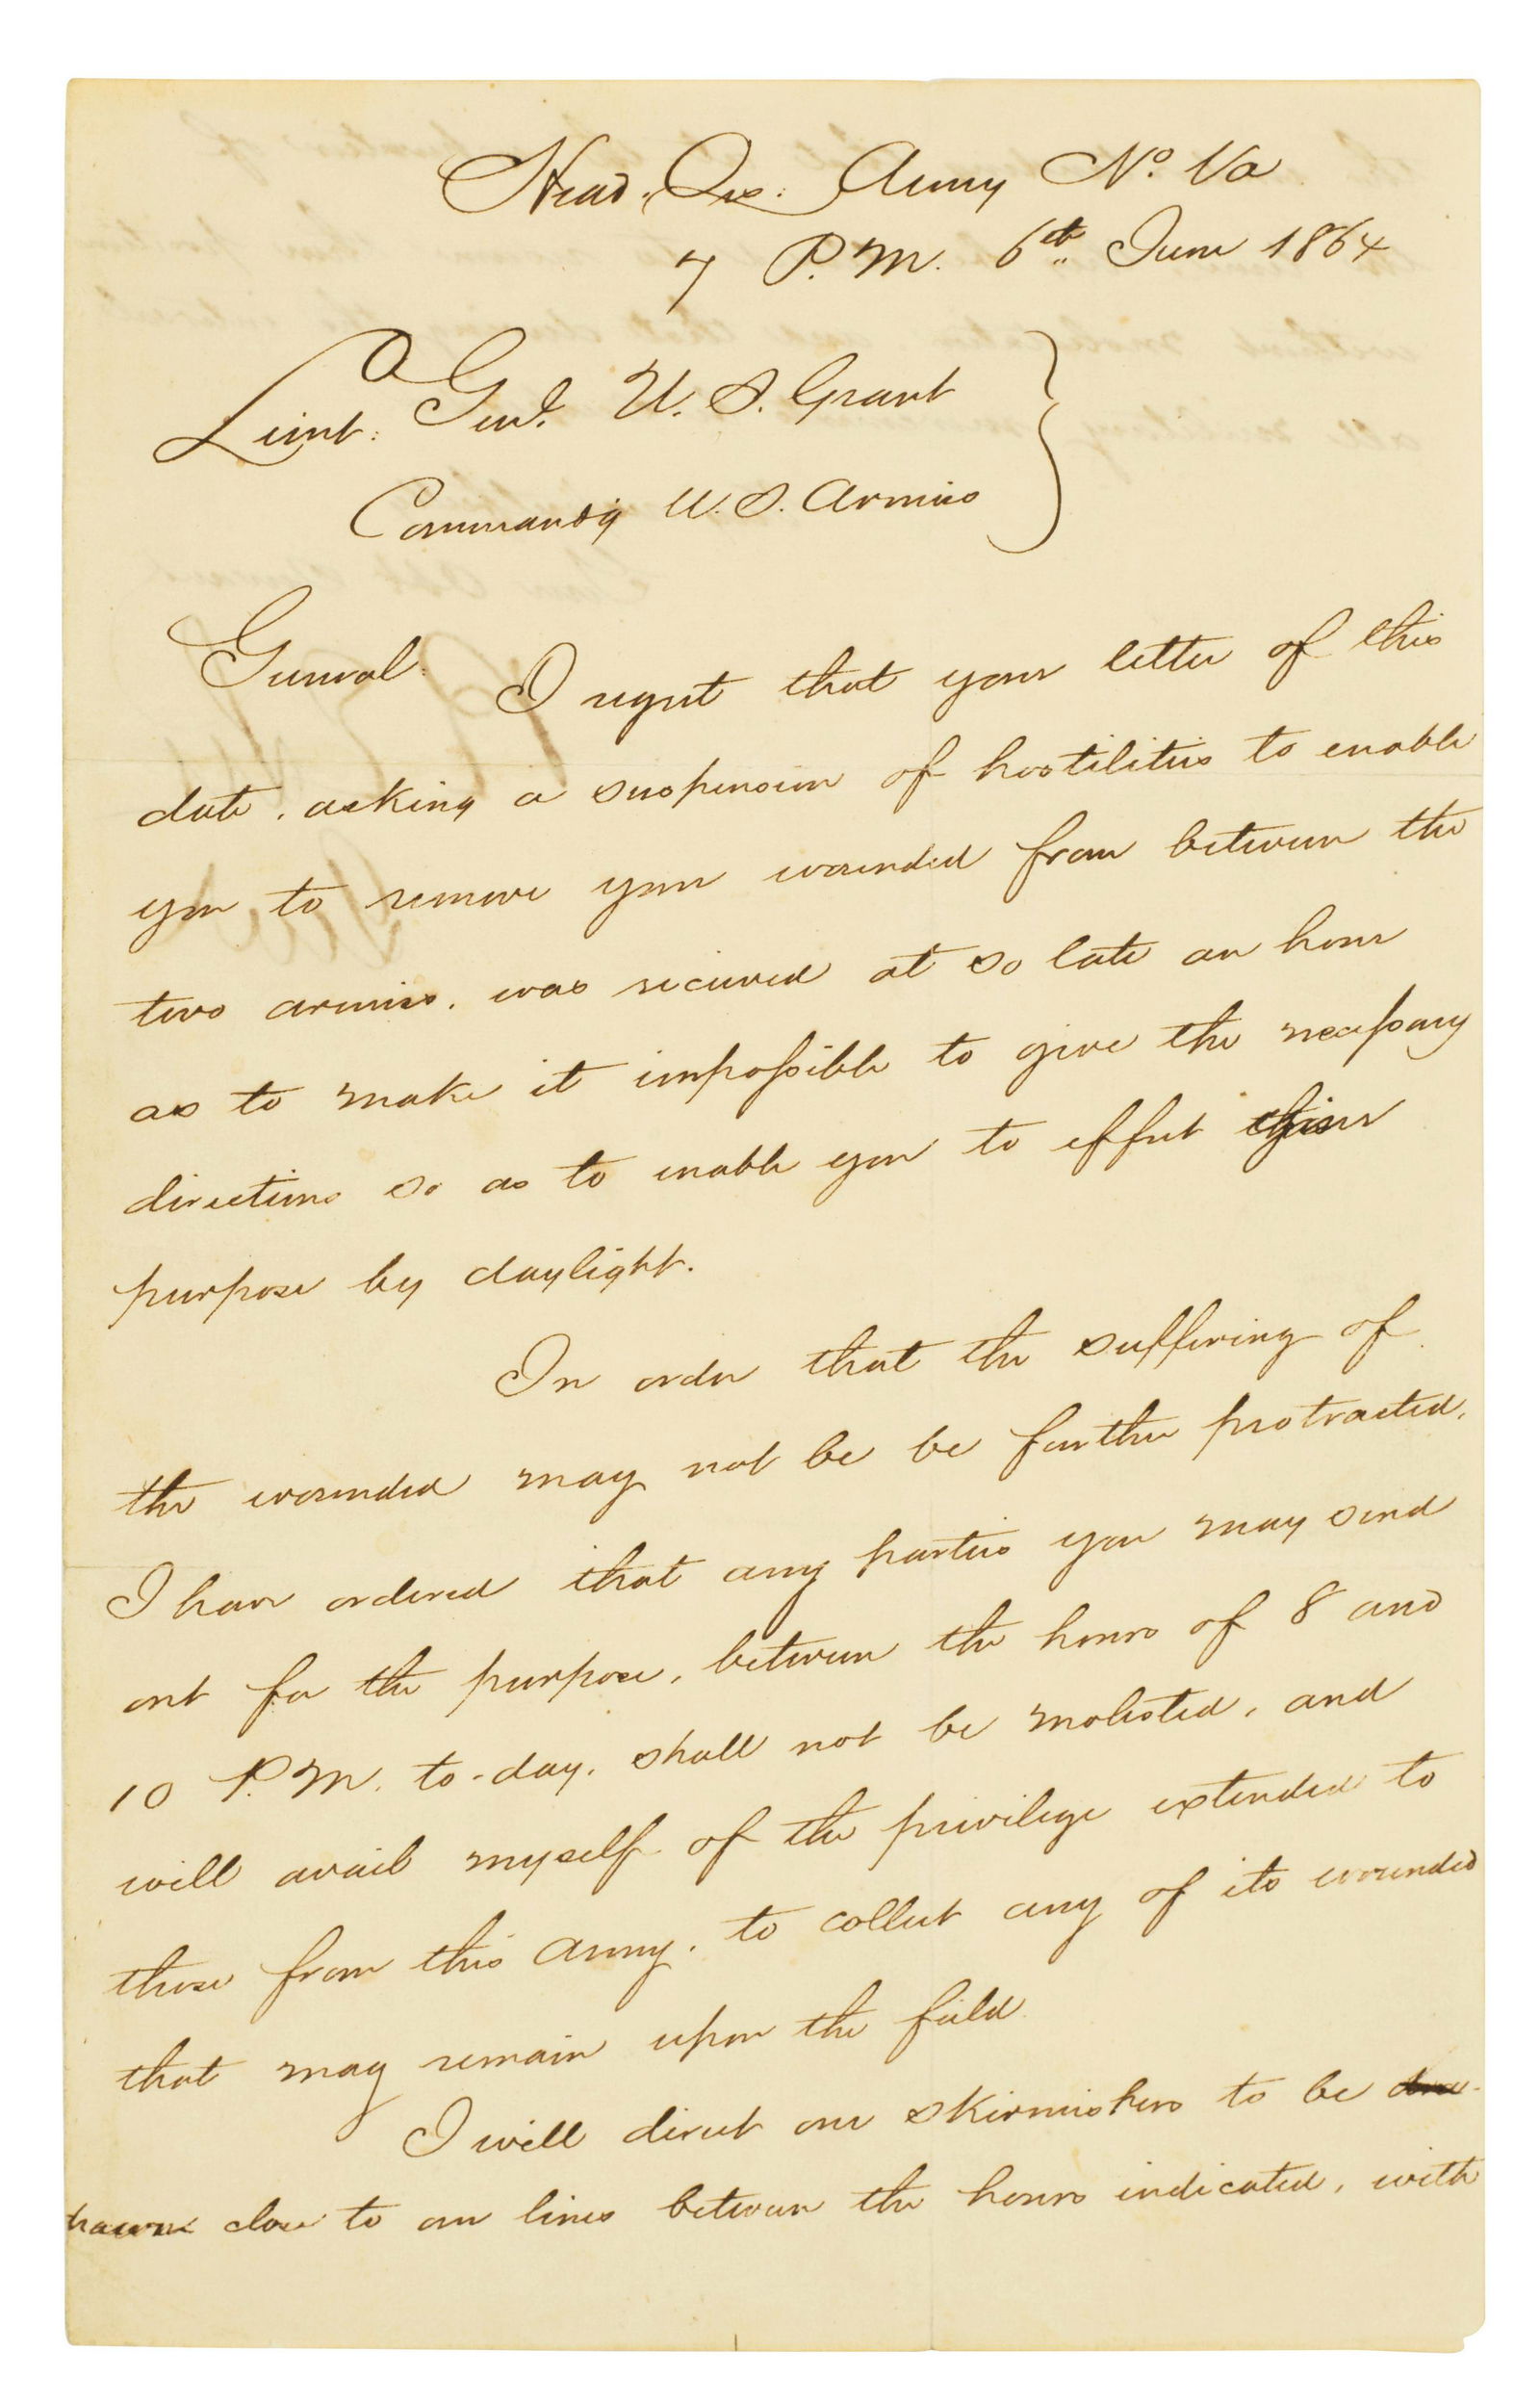 Head. Qrs: Army No. Va
7 P.M. 6th June 1864
Lieut: Genl. U. S. Grant
Commandg U. S. Armies
General. I regret that your letter of this
date, asking a suspension of hostilities to enable
you to remove your wounded from between the
two armies, was received at so late an hour
as to make it impossible to give the necessary
directions so as to enable you to effect your
purpose by daylight.
In order that the suffering of
the wounded may not be be further protracted,
I have ordered that any parties you may send
out for the purpose, between the hours of 8 and
10 P.M. to-day, shall not be molested, and
will avail myself of the privilege extended to
those from this army, to collect any of its wounded
that may remain upon the field.
I will direct our skirmishers to be
drawn close to our lines between the hours indicated, with